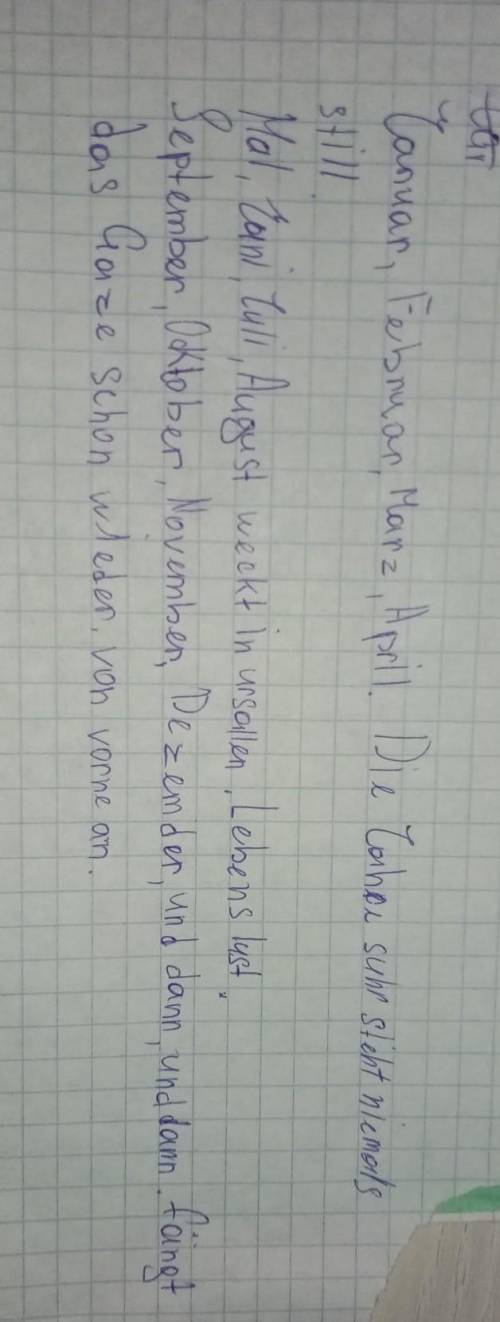 Januar, Februar, Marz, April. Die Jahre suhr steht niemals
still
Mai, Juni, Juli, August weckt in unsallen, Lebens lust.
September, Oktober, November, Dezemder, und dann, und dann. fängt
das Ganze schon wieder, von vorne an.